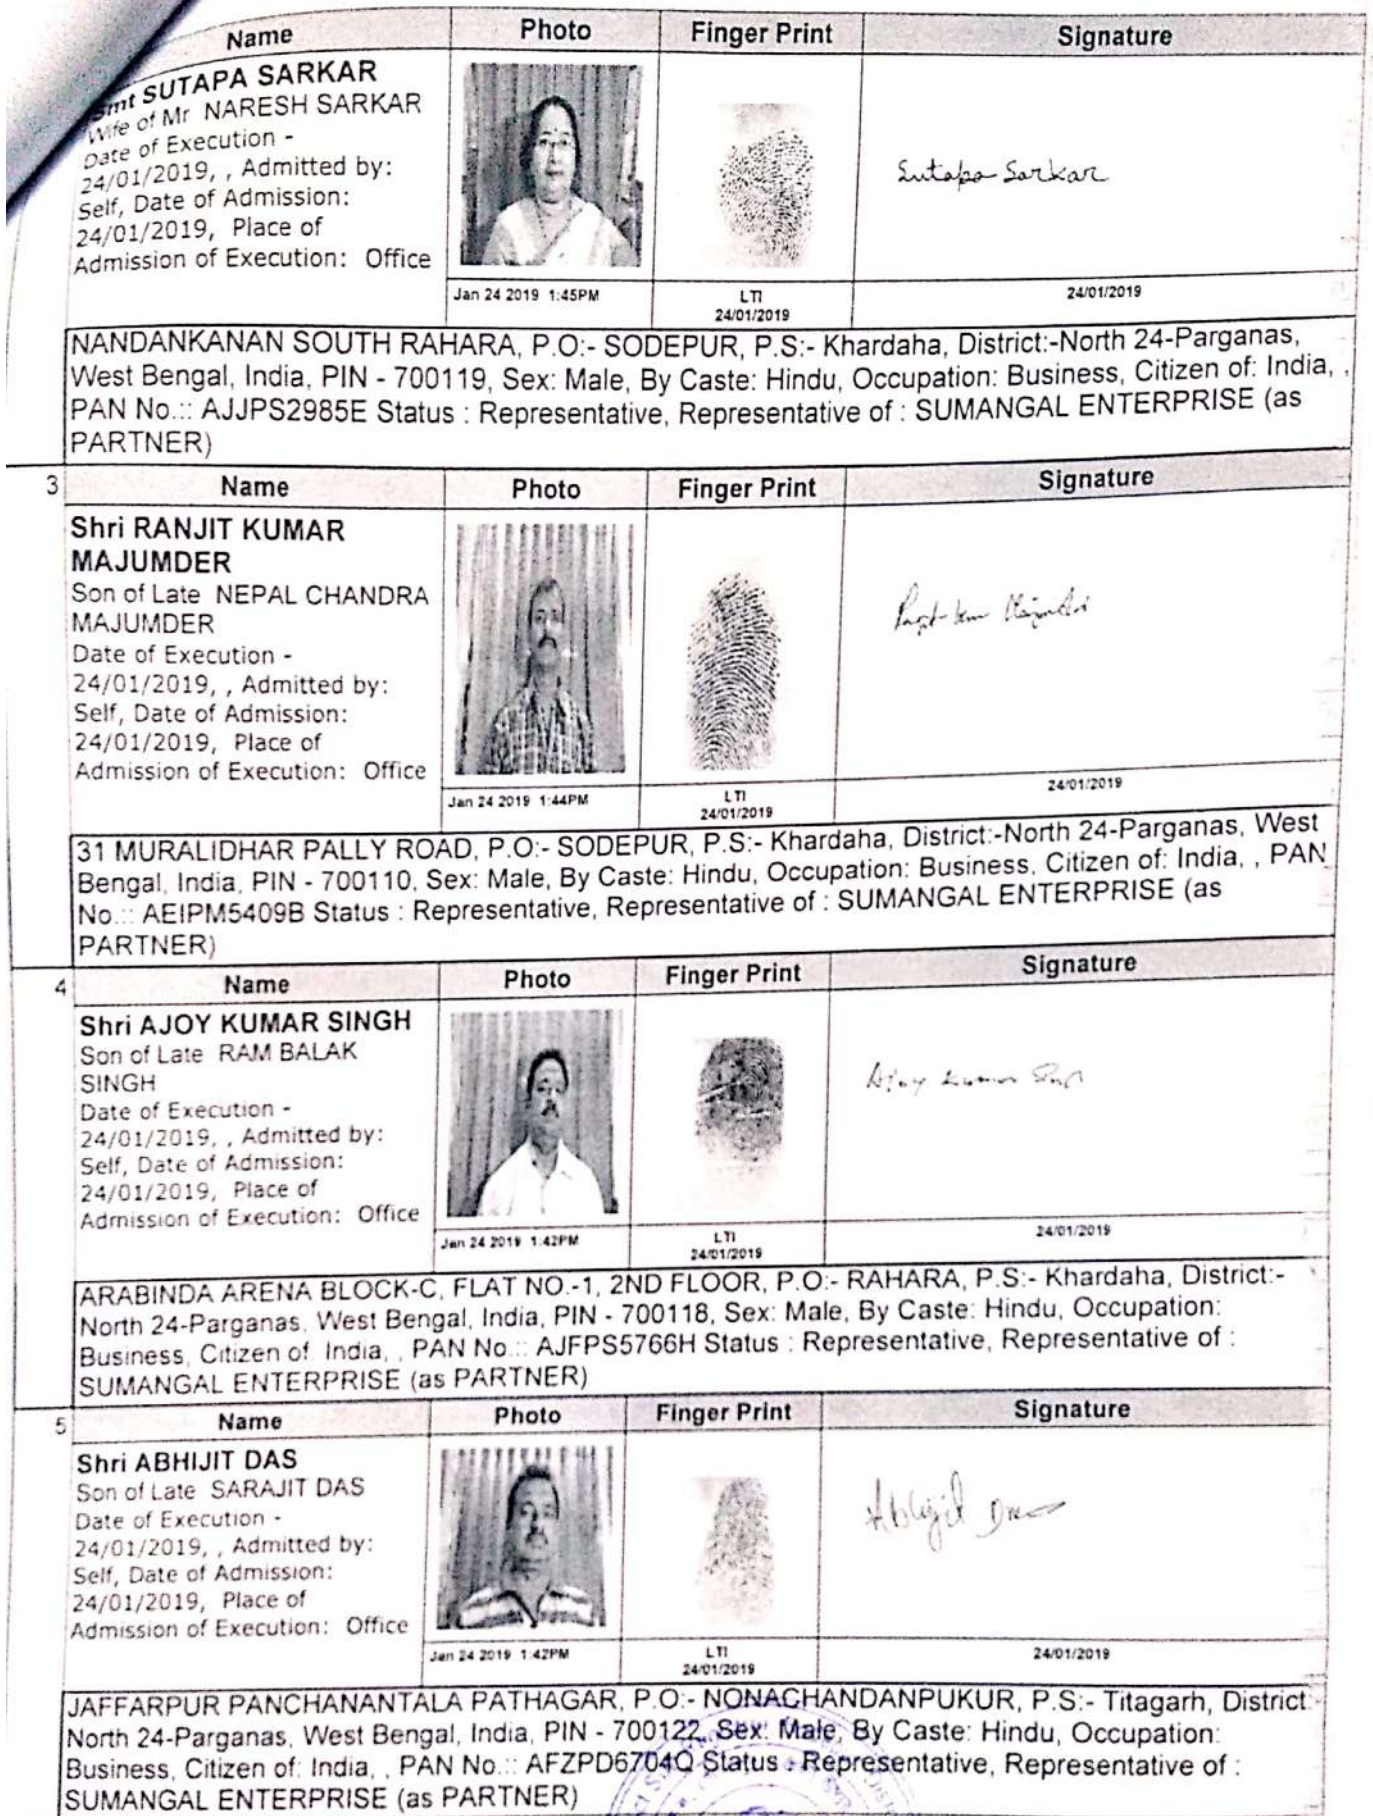 Name Photo Finger Print Signature
Smt SUTAPA SARKAR
Wife of Mr NARESH SARKAR
Date of Execution -
24/01/2019, , Admitted by:
Self, Date of Admission:
24/01/2019, Place of
Admission of Execution: Office
Sutapa Sarkar
Jan 24 2019 1:45PM LTI 24/01/2019
24/01/2019
NANDANKANAN SOUTH RAHARA, P.O:- SODEPUR, P.S:- Khardaha, District:-North 24-Parganas,
West Bengal, India, PIN - 700119, Sex: Male, By Caste: Hindu, Occupation: Business, Citizen of: India, ,
PAN No.:: AJJPS2985E Status : Representative, Representative of : SUMANGAL ENTERPRISE (as
PARTNER)
3 Name Photo Finger Print Signature
Shri RANJIT KUMAR
MAJUMDER
Son of Late NEPAL CHANDRA
MAJUMDER
Date of Execution -
24/01/2019, , Admitted by:
Self, Date of Admission:
24/01/2019, Place of
Admission of Execution: Office
Jan 24 2019 1:44PM LTI 24/01/2019
24/01/2019
31 MURALIDHAR PALLY ROAD, P.O:- SODEPUR, P.S:- Khardaha, District:-North 24-Parganas, West
Bengal, India, PIN - 700110, Sex: Male, By Caste: Hindu, Occupation: Business, Citizen of: India, , PAN
No.:: AEIPM5409B Status : Representative, Representative of : SUMANGAL ENTERPRISE (as
PARTNER)
4 Name Photo Finger Print Signature
Shri AJOY KUMAR SINGH
Son of Late RAM BALAK
SINGH
Date of Execution -
24/01/2019, , Admitted by:
Self, Date of Admission:
24/01/2019, Place of
Admission of Execution: Office
Ajoy Kumar
Jan 24 2019 1:42PM LTI 24/01/2019
24/01/2019
ARABINDA ARENA BLOCK-C, FLAT NO.-1, 2ND FLOOR, P.O:- RAHARA, P.S:- Khardaha, District:-
North 24-Parganas, West Bengal, India, PIN - 700118, Sex: Male, By Caste: Hindu, Occupation:
Business, Citizen of: India, , PAN No.:: AJFPS5766H Status : Representative, Representative of :
SUMANGAL ENTERPRISE (as PARTNER)
5 Name Photo Finger Print Signature
Shri ABHIJIT DAS
Son of Late SARAJIT DAS
Date of Execution -
24/01/2019, , Admitted by:
Self, Date of Admission:
24/01/2019, Place of
Admission of Execution: Office
Abhijit Das
Jan 24 2019 1:42PM LTI 24/01/2019
24/01/2019
JAFFARPUR PANCHANANTALA PATHAGAR, P.O:- NONACHANDANPUKUR, P.S:- Titagarh, District:-
North 24-Parganas, West Bengal, India, PIN - 700122, Sex: Male, By Caste: Hindu, Occupation:
Business, Citizen of: India, , PAN No.:: AFZPD6704Q Status : Representative, Representative of :
SUMANGAL ENTERPRISE (as PARTNER)